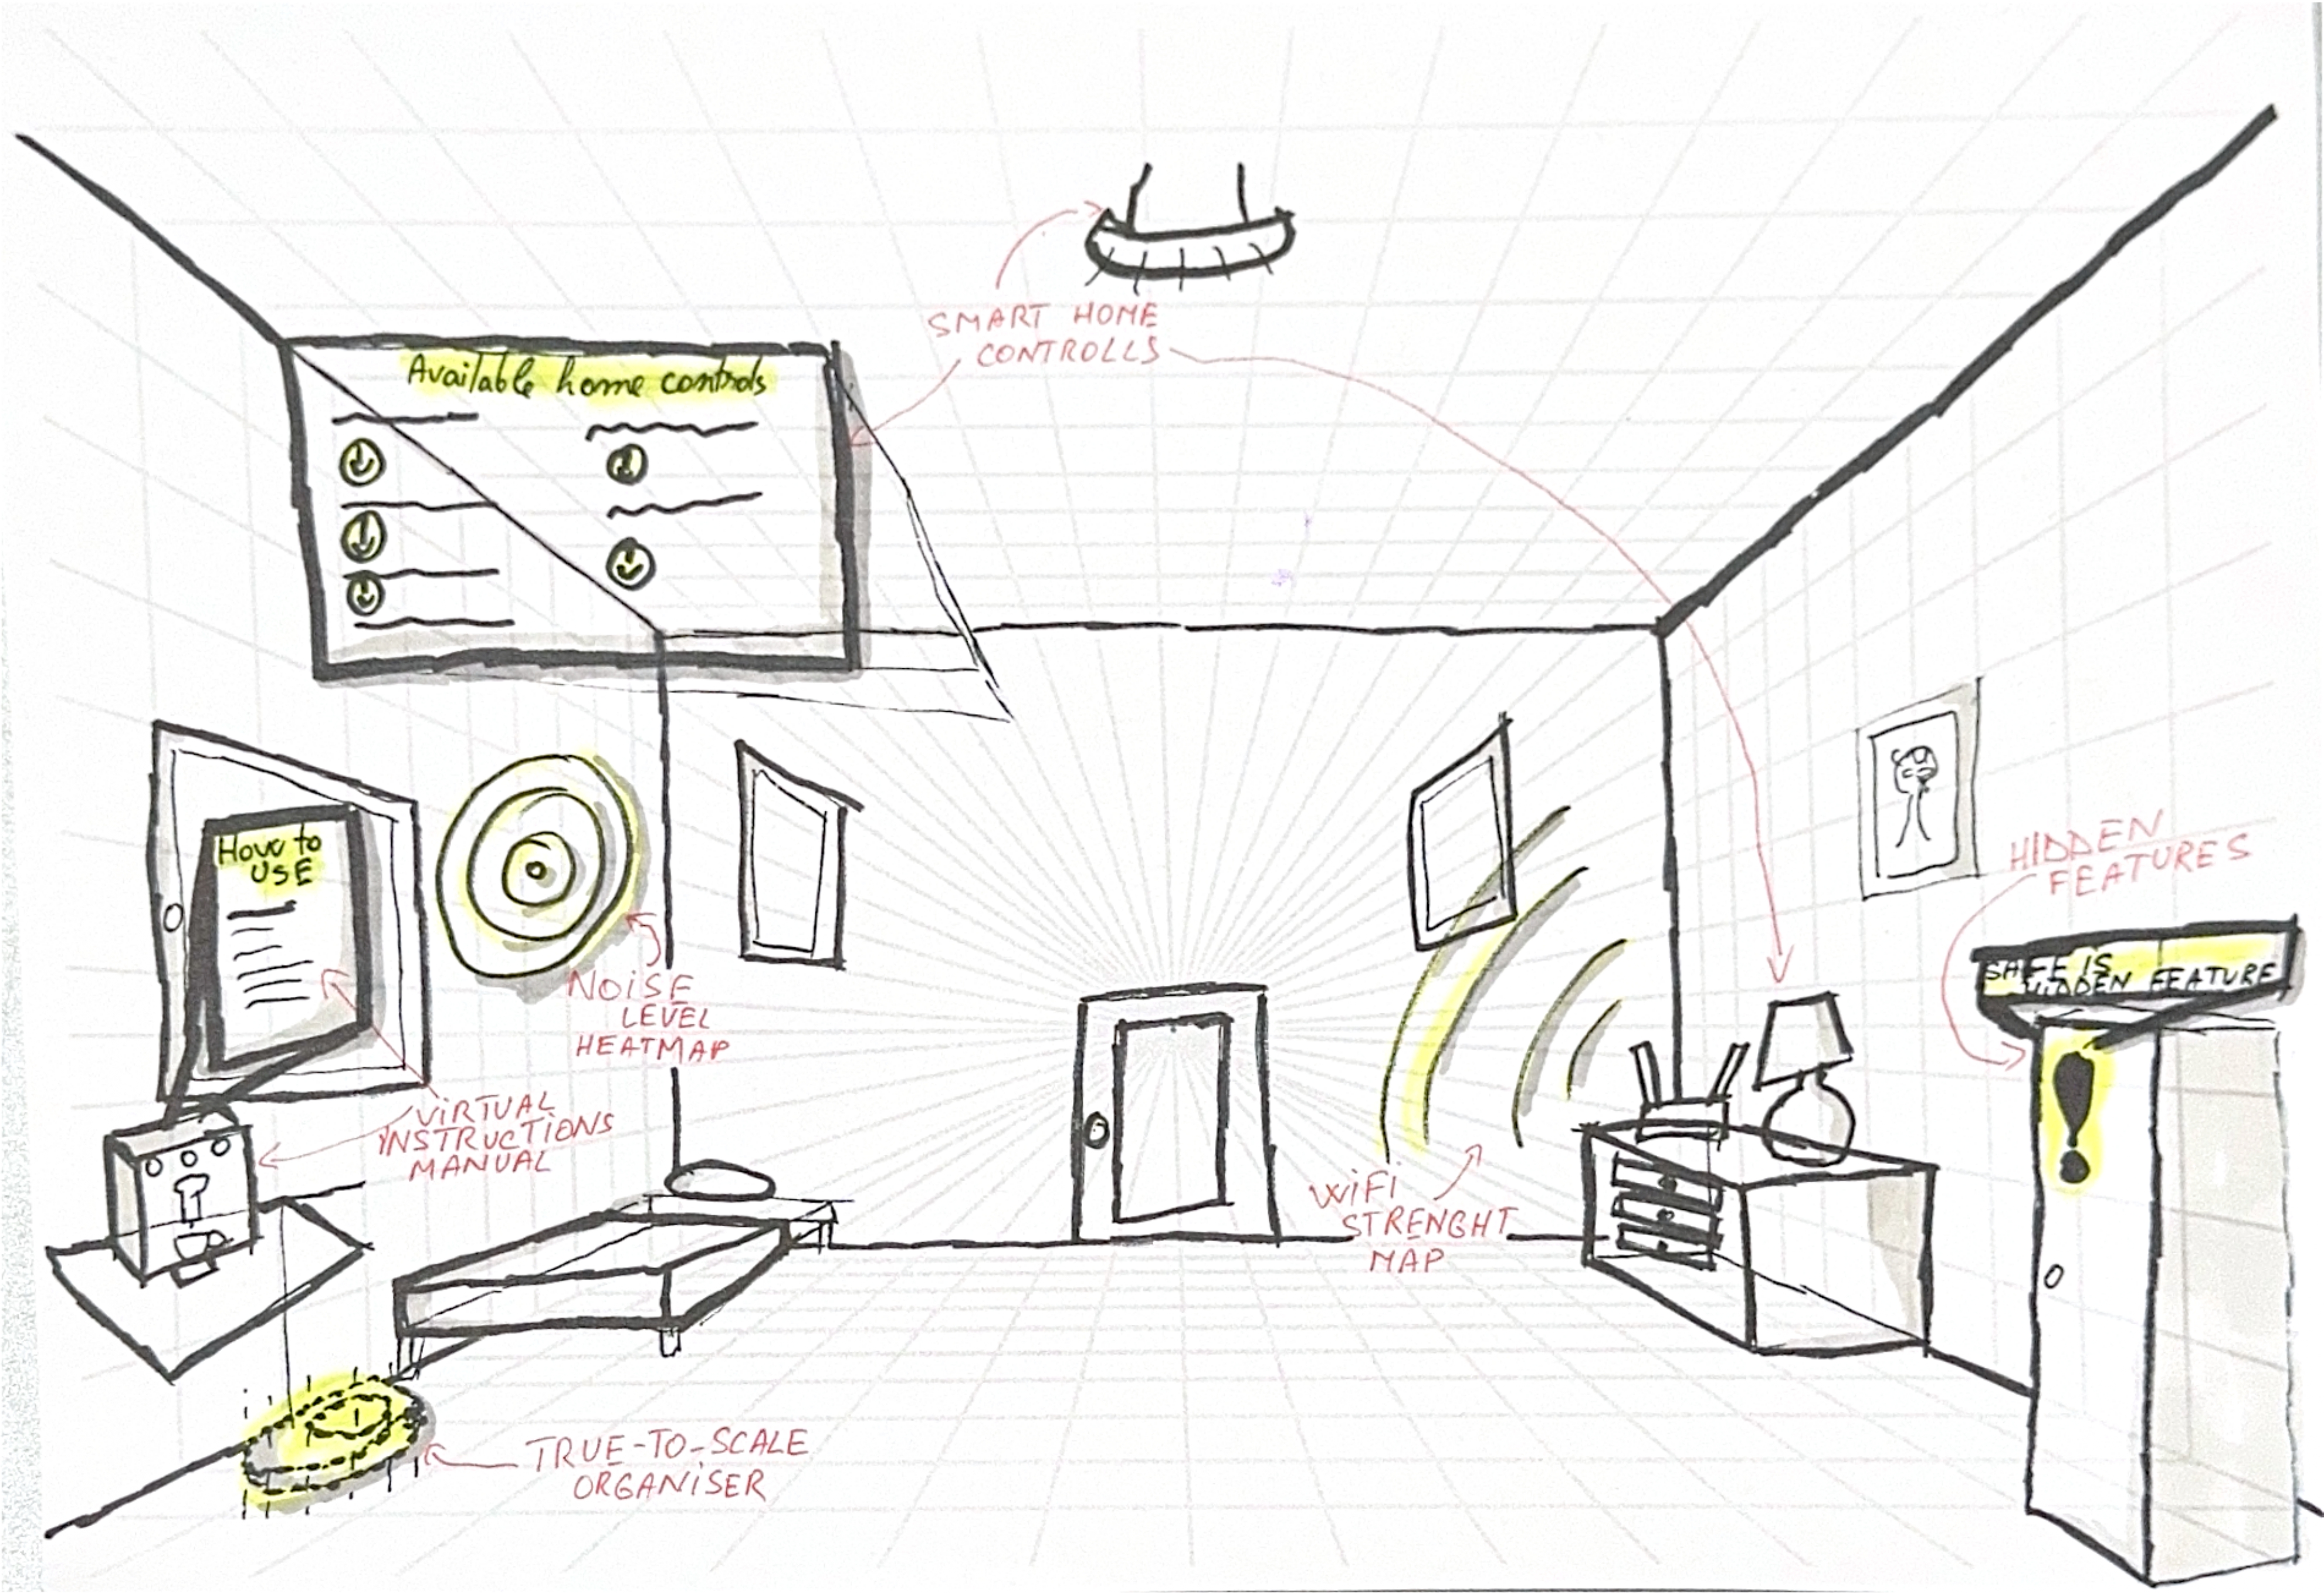 SMART HOME
CONTROLLS
Available home controls
How to
USE
NOISE
LEVEL
HEATMAP
VIRTUAL
INSTRUCTIONS
MANUAL
HIDDEN
FEATURES
SAFE IS
HIDDEN FEATURE
WiFi
STRENGHT
MAP
TRUE-TO-SCALE
ORGANISER